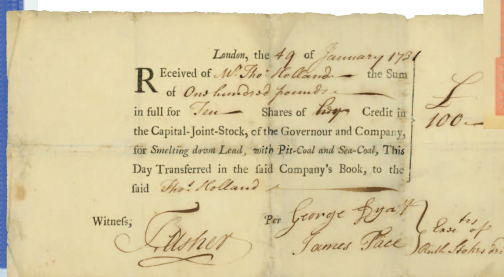 London, the 49 of January 1731
REceived of Mr. Thos. Holland the Sum
of One hundred pounds
in full for Ten Shares of Credit in
the Capital-Joint-Stock, of the Governour and Company,
for Smelting down Lead, with Pit-Coal and Sea-Coal, This
Day Transferred in the said Company's Book, to the
said Thos. Holland
£
100
Witness, Per George
James